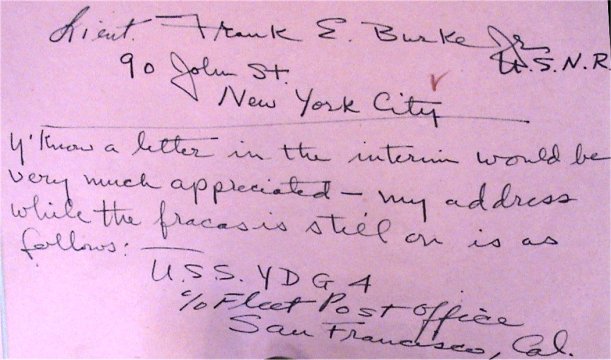 Lieut. Frank E. Burke Jr
U.S.N.R.
90 John St.
New York City
Y'Know a letter in the interim would be
very much appreciated – my address
while the fracas is still on is as
follows:
U.S.S. YDG 4
c/o Fleet Post Office
San Francisco, Cal.